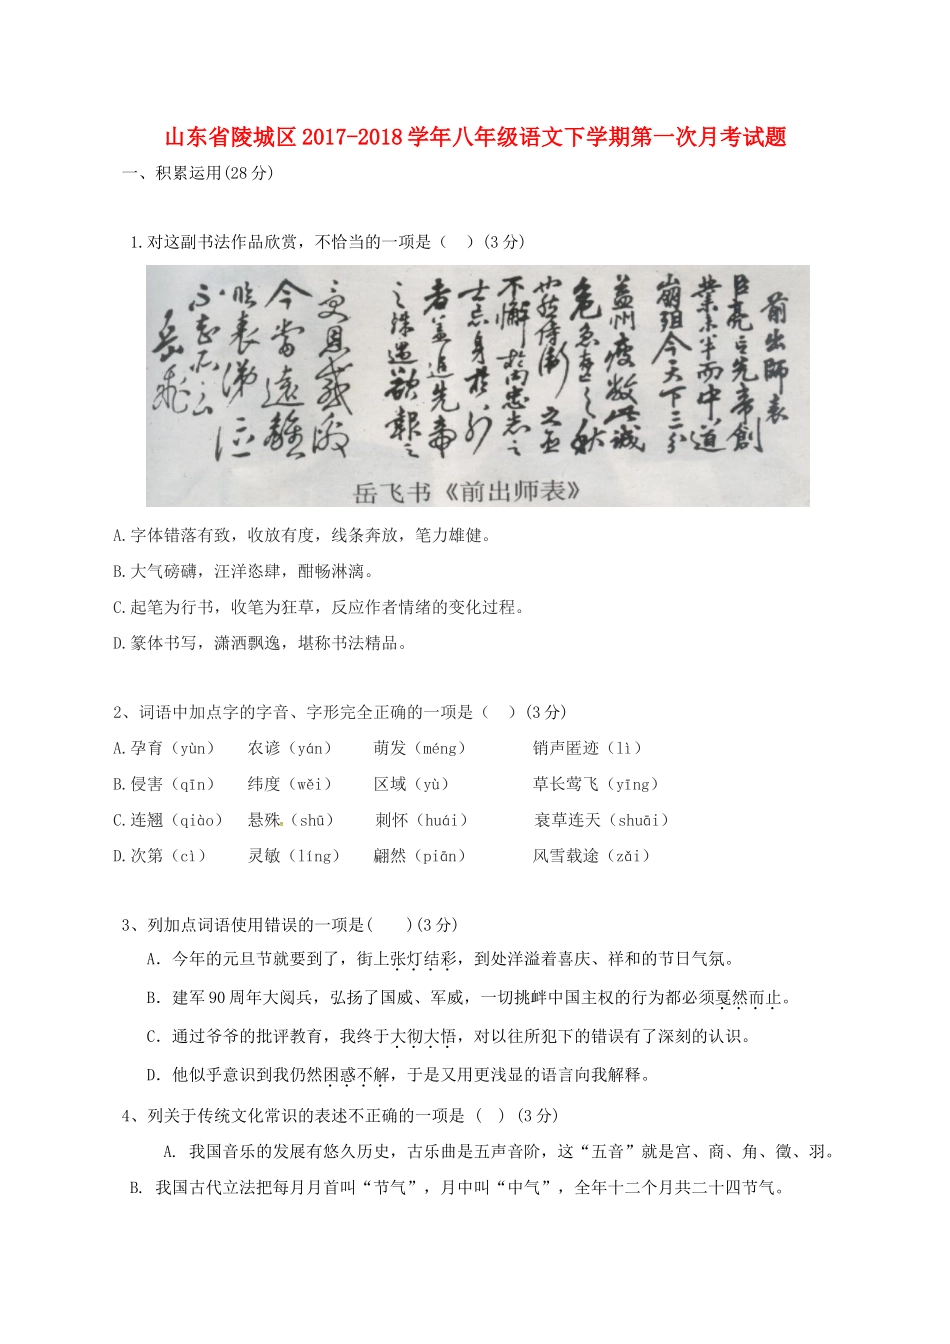 山东省陵城区2017-2018学年八年级语文下学期第一次月考试题
一、积累运用(28分)
1.对这副书法作品欣赏，不恰当的一项是（　）(3分)
前出師表
臣亮言先帝創
業未半而中道
崩殂今天下三分
益州疲敝此誠
危急存亡之秋
也然侍衛之臣
不懈於内忠志之
士忘身於外
者蓋追先帝
之殊遇欲報之
受恩感激
今當遠離
臨表涕泣
不知所云
岳飛
岳飞书《前出师表》
A.字体错落有致，收放有度，线条奔放，笔力雄健。
B.大气磅礴，汪洋恣肆，酣畅淋漓。
C.起笔为行书，收笔为狂草，反应作者情绪的变化过程。
D.篆体书写，潇洒飘逸，堪称书法精品。
2、词语中加点字的字音、字形完全正确的一项是（　）(3分)
A.孕育（yùn） 农谚（yán） 萌发（méng） 销声匿迹（lì）
B.侵害（qīn） 纬度（wěi） 区域（yù） 草长莺飞（yīng）
C.连翘（qiào） 悬殊（shū） 刺怀（huái） 衰草连天（shuāi）
D.次第（cì） 灵敏（líng） 翩然（piān） 风雪载途（zǎi）
3、列加点词语使用错误的一项是(　　)(3分)
A．今年的元旦节就要到了，街上张灯结彩，到处洋溢着喜庆、祥和的节日气氛。
B．建军90周年大阅兵，弘扬了国威、军威，一切挑衅中国主权的行为都必须戛然而止。
C．通过爷爷的批评教育，我终于大彻大悟，对以往所犯下的错误有了深刻的认识。
D．他似乎意识到我仍然困惑不解，于是又用更浅显的语言向我解释。
4、列关于传统文化常识的表述不正确的一项是 (　) (3分)
A. 我国音乐的发展有悠久历史，古乐曲是五声音阶，这“五音”就是宫、商、角、徵、羽。
B. 我国古代立法把每月月首叫“节气”，月中叫“中气”，全年十二个月共二十四节气。